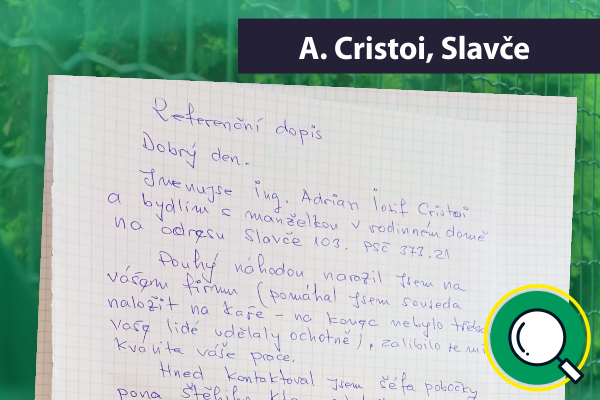 A. Cristoi, Slavče
Referenční dopis
Dobrý den.
Jmenujse ing. Adrian Iosif Cristoi
a bydlím s manželkou v rodinném domě
na adresu Slavče 103. PSČ 373.21
Pouhý náhodou narazil jsem na
vášem firmu (pomáhal jsem souseda
naložit na káře – na konec nebylo třeba
vaše lidé udělaly ochotně), zalíbilo se mi
kvalita váše prace.
Hned kontaktoval jsem šéfa pobočky
pona